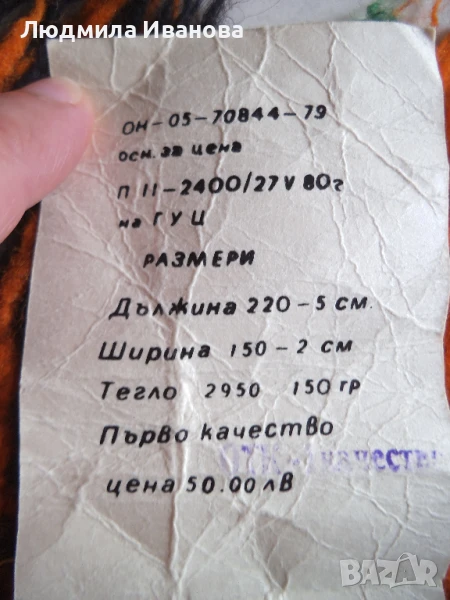 Людмила Иванова
ОН-05-70844-79
осн. за цена
П II-2400/27 V 80г
на ГУЦ
РАЗМЕРИ
Дължина 220-5 см.
Ширина 150-2 см
Тегло 2950 150 гр
Първо качество
цена 50.00 лв
BAZAR